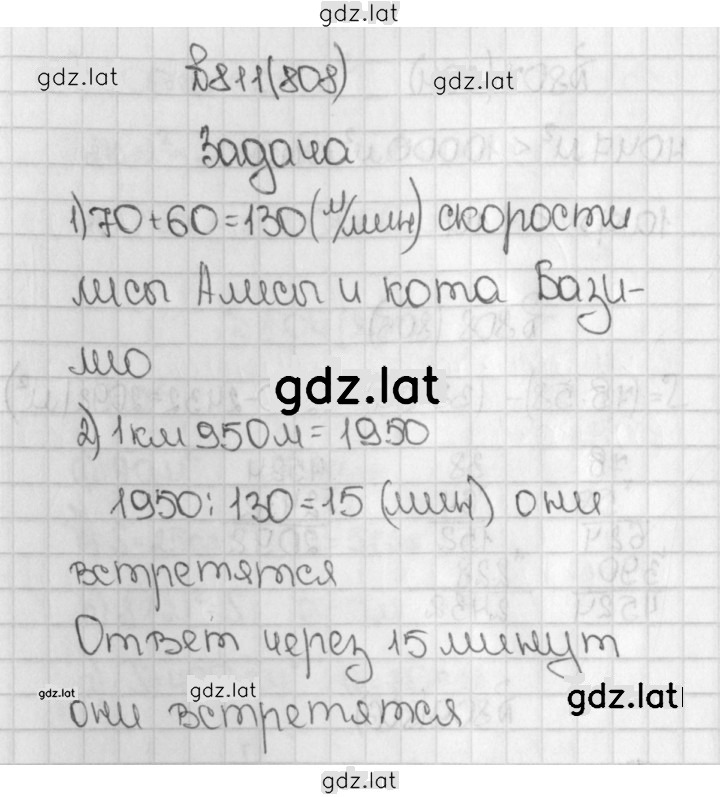 gdz.lat
№811(808)
gdz.lat
gdz.lat
Задача
1) 70+60=130(м/мин) скорости
лисы Алисы и кота Бази-
лио
gdz.lat
2) 1км 950м=1950
1950:130=15 (мин) они
встретятся
Ответ через 15 минут
gdz.lat
gdz.lat
gdz.lat
они встретятся
gdz.lat